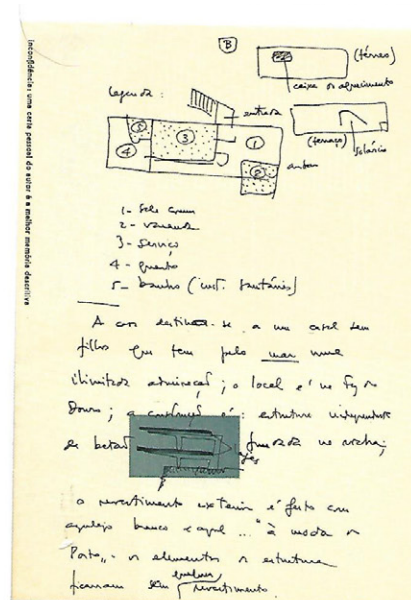 inconfidência: uma carta pessoal do autor é a melhor memória descritiva
B
(térreo)
caixa de aquecimento
legenda:
entrada
(terraço)
solário
5
3
1
4
2
1- sala comum
2- varanda
3- serviço
4- quarto
5- banho (inst. sanitárias)
A casa destina-se a um casal sem
filhos que tem pelo mar uma
ilimitada admiração; o local é na Foz do
Douro; a construção é: estrutura independente
de betão fundada na rocha;
lajes
o revestimento exterior é feito com
azulejo branco e azul ... "à moda do
Porto" - os elementos da estrutura
ficaram sem qualquer revestimento.